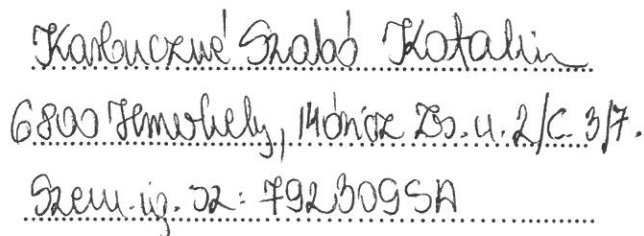 Szabó Katalin
6800 Hmvhely, Móricz Zs. u. 2/C. 3/7.
Szem. ig. sz: 792309SA